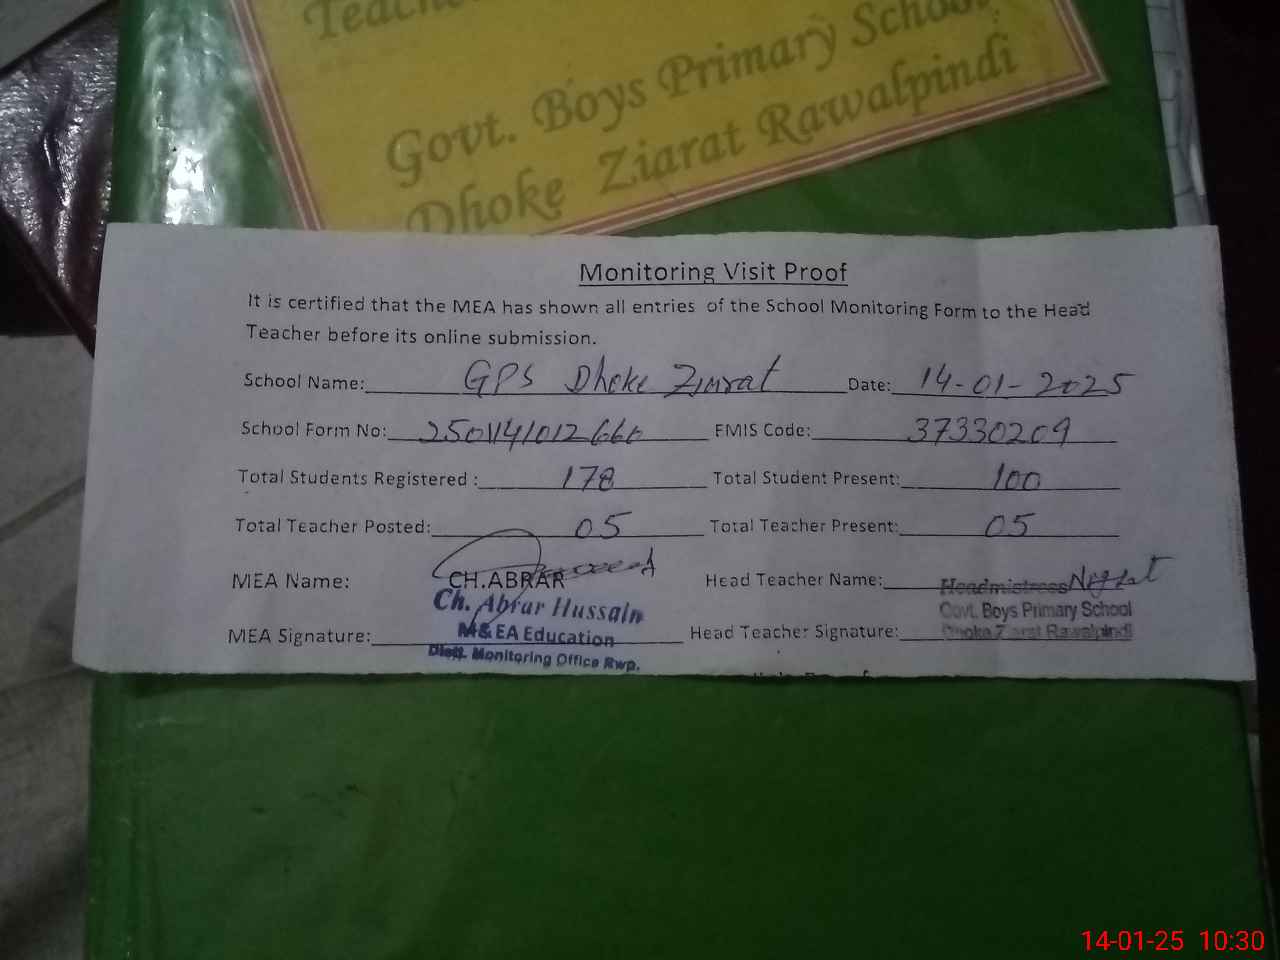 Teache
Govt. Boys Primary School
Dhoke Ziarat Rawalpindi
Monitoring Visit Proof
It is certified that the MEA has shown all entries of the School Monitoring Form to the Head
Teacher before its online submission.
School Name: GPS Dhoke Ziarat Date: 14-01-2025
School Form No: 2501141012666 EMIS Code: 37330209
Total Students Registered : 178 Total Student Present: 100
Total Teacher Posted: 05 Total Teacher Present: 05
MEA Name: CH.ABRAR Head Teacher Name:
Ch. Abrar Hussain Headmistress
M&EA Education Govt. Boys Primary School
MEA Signature: Head Teacher Signature: Dhoke Ziarat Rawalpindi
Distt. Monitoring Office Rwp.
14-01-25 10:30